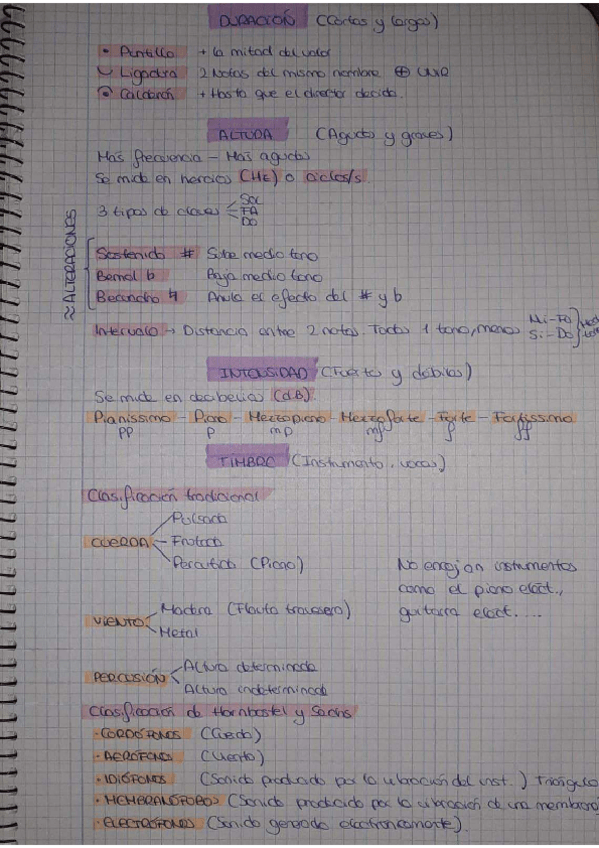 DURACIÓN (Cortas y largas)
• Puntillo + la mitad del valor
Ligadura 2 notas del mismo nombre ⊕ una
Calderón + Hasta que el director decida.
ALTURA (Agudos y graves)
Más frecuencia - Más agudos
Se mide en hercios (Hz) o ciclos/s.
3 tipos de claves SOL
FA
DO
≈ ALTERACIONES
Sostenido # Sube medio tono
Bemol b Baja medio tono
Becuadro ♮ Anula el efecto del # y b
Intervalo → Distancia entre 2 notas. Todos 1 tono, menos Mi-Fa
Si-Do
INTENSIDAD (Fuertes y débiles)
Se mide en decibelios (dB).
Pianissimo - Piano - Mezzopiano - Mezzoforte - Forte - Fortissimo
pp p mp mf f ff
TIMBRE (Instrumento, voces)
Clasificación tradicional
CUERDA Pulsada
Frotada
Percutida (Piano)
No encajan instrumentos
como el piano eléct.,
guitarra eléct. ....
VIENTO Madera (Flauta travesera)
Metal
PERCUSIÓN Altura determinada
Altura indeterminada
Clasificación de Hornbostel y Sachs
· CORDÓFONOS (Cuerda)
· AERÓFONOS (Viento)
· IDIÓFONOS (Sonido producido por la vibración del inst.) Triángulo
· MEMBRANÓFONOS (Sonido producido por la vibración de una membrana
· ELECTRÓFONOS (Sonido generado electrónicamente).